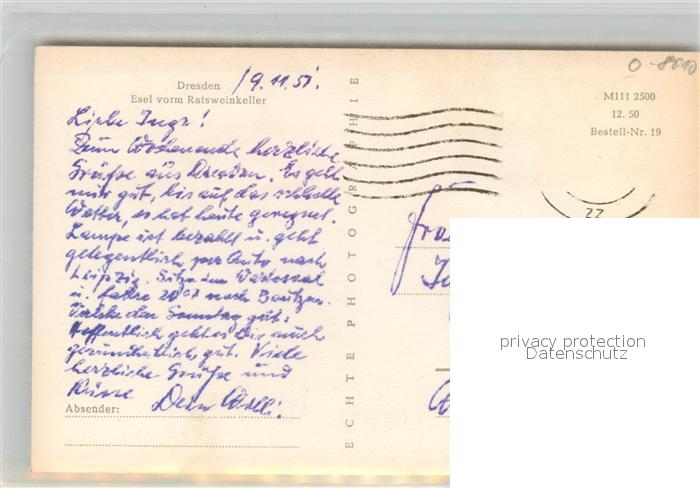 Dresden 19.11.51.
Esel vorm Ratsweinkeller
Liebe Inge!
Zum Wochenende herzliche
Grüße aus Dresden. Es geht
mir gut, bis auf das schlechte
Wetter, es hat heute geregnet.
Lampe ist bezahlt u. geht
gelegentlich per Auto nach
Leipzig. Sitze im Wartesaal
u. fahre 20 nach Bautzen.
den Sonntag gut.
Hoffentlich geht es Dir auch
gesundheitlich gut. Viele
herzliche Grüße und
Küsse Dein Willi.
Absender:
ECHTE PHOTOGRAPHIE
0-8010
M111 2500
12. 50
Bestell-Nr. 19
22
Frau
privacy protection
Datenschutz